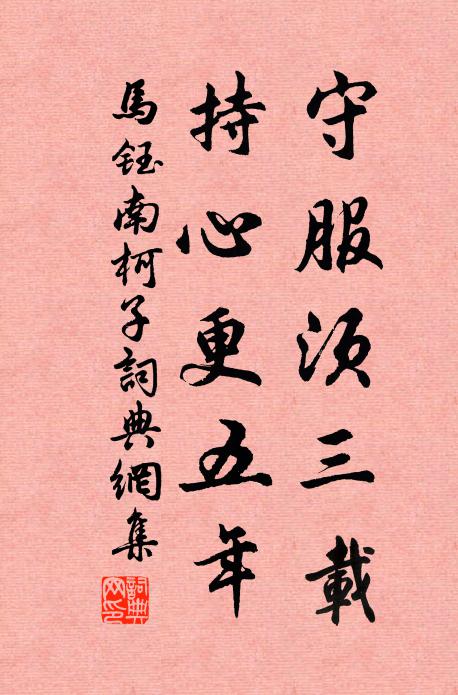 守服須三載
持心更五年
馬鈺南柯子詞典網集
詞典
网印